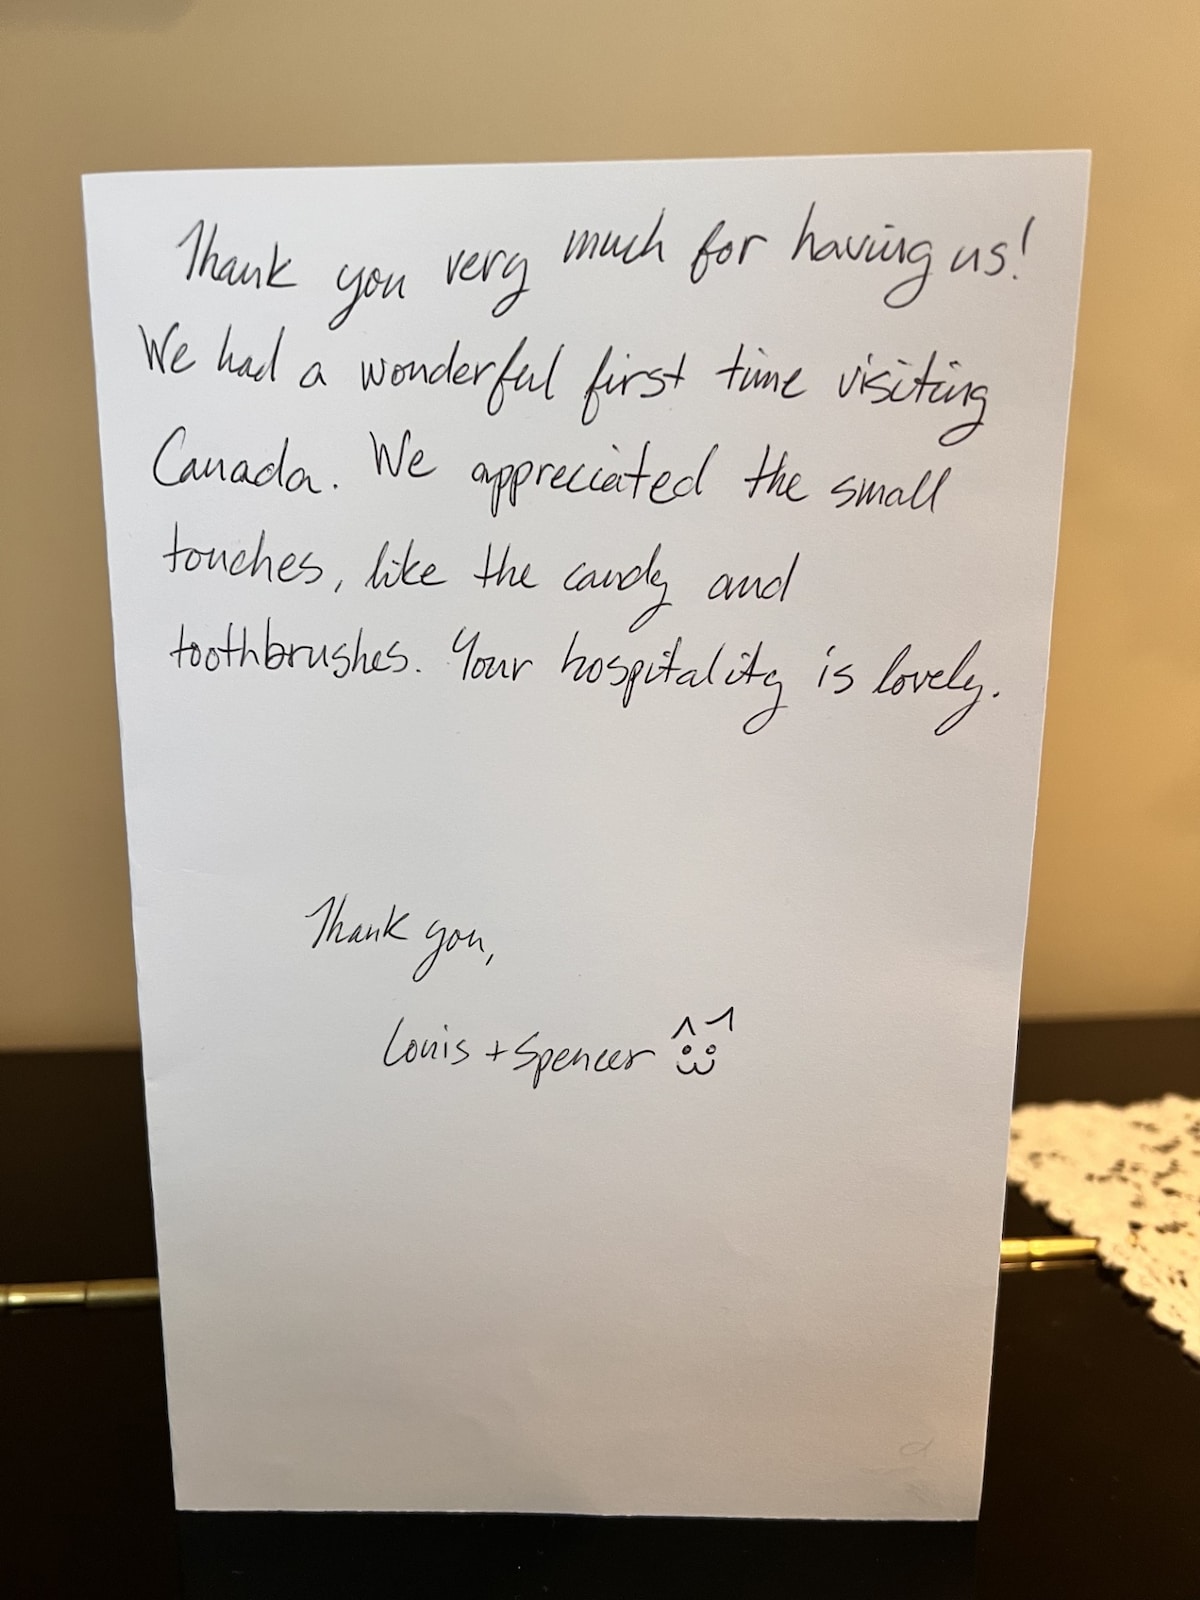 Thank you very much for having us!
We had a wonderful first time visiting
Canada. We appreciated the small
touches, like the candy and
toothbrushes. Your hospitality is lovely.
Thank you,
Louis + Spencer